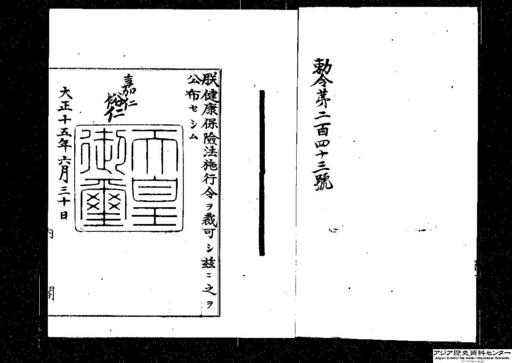 勅令第二百四十三號
朕健康保險法施行令ヲ裁可シ茲ニ之ヲ
公布セシム
嘉仁
裕仁
天皇
御璽
大正十五年六月三十日
内閣
アジア歴史資料センター
Japan Center for Asian Historical Records